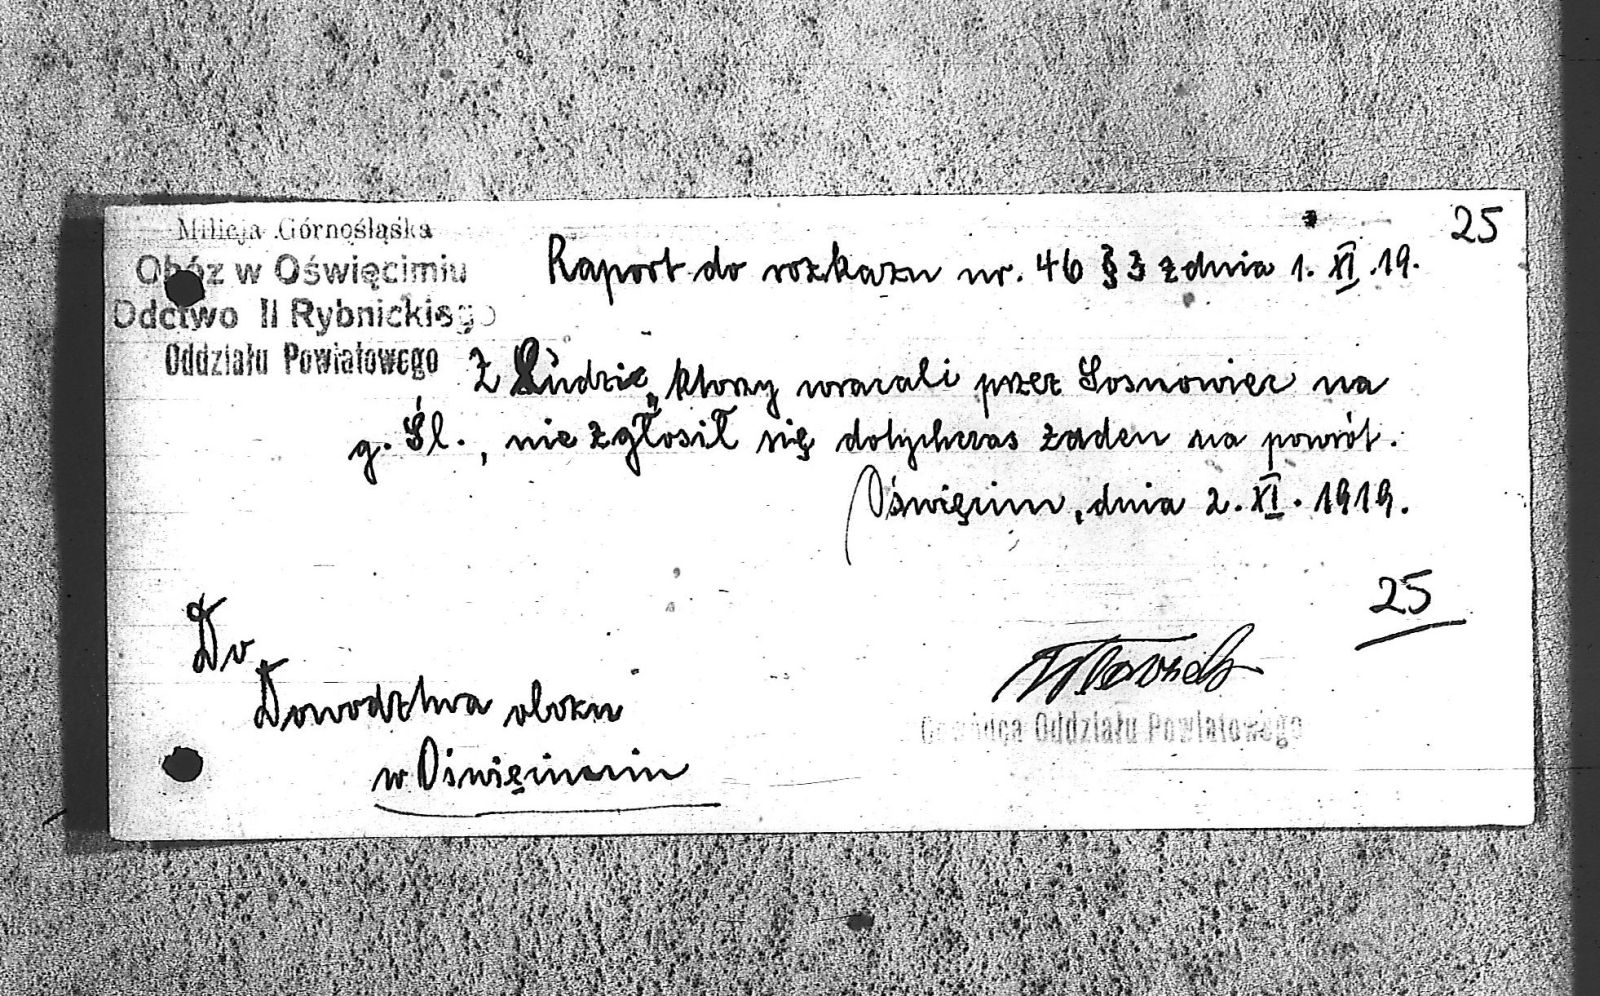 25
Milicja Górnośląska
Obóz w Oświęcimiu
Odctwo II Rybnickiego
Oddziału Powiatowego
Raport do rozkazu nr. 46 § 3 z dnia 1. XI. 19.
Z Ludzi, ktorzy wracali przez Sosnowiec na
g. Śl., nie zgłosił się dotychczas żaden na powrót.
Oświęcim, dnia 2. XI. 1919.
25
Do
Dowodztwa obozu
w Oświęcimiu
Dowódca Oddziału Powiatowego